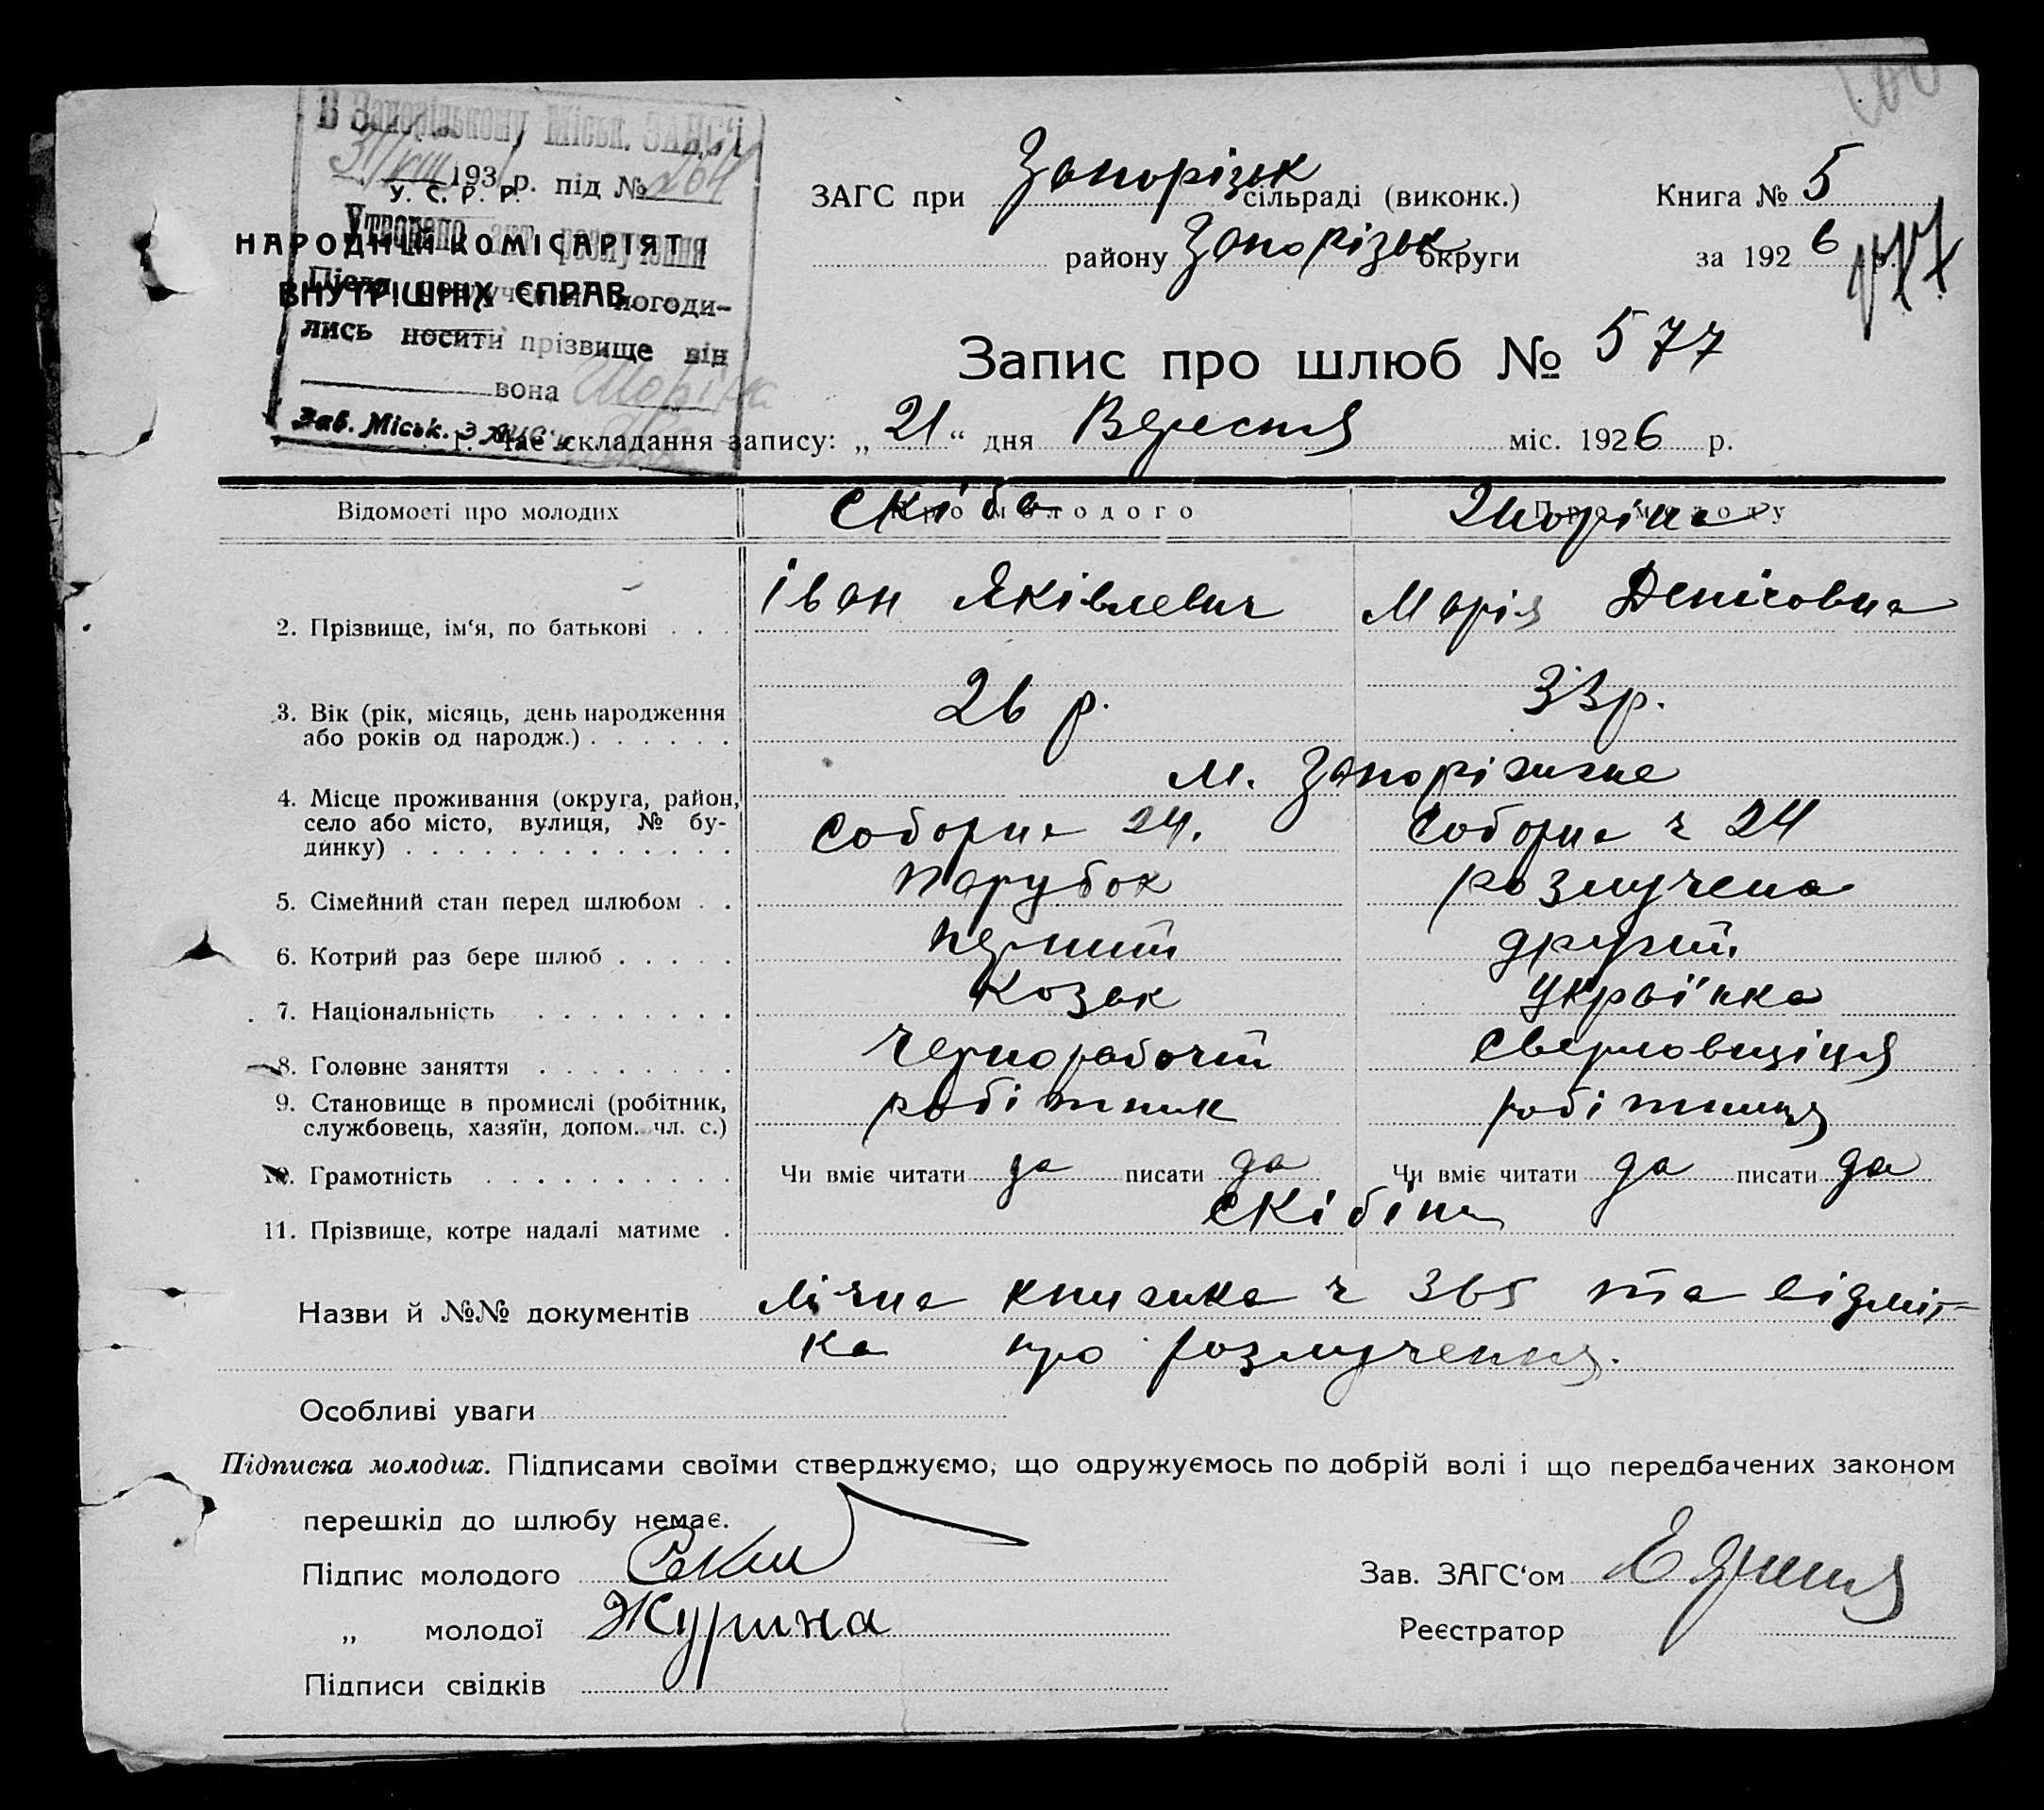 В Запорізькому Міськ. ЗАГС'і
31/VIII 1931 р. під № 264
У. С. Р. Р.
Утворено акт розлучення
НАРОДНІЙ КОМІСАРІЯТ
ВНУТРІШНІХ СПРАВ
Після розлучення погоди-
лись носити прізвище він
вона
Зав. Міськ.
ЗАГС при Запорізьк сільраді (виконк.) Книга № 5
району Запорізьк округи за 1926 р.
577
Запис про шлюб № 577
1. Час складання запису: „21“ дня Вересня міс. 1926 р.
Відомості про молодих Про молодого Про молоду
Скіба
2. Прізвище, ім‘я, по батькові . . . Іван Яківлевич Марія
3. Вік (рік, місяць, день народження 26 р. 33р.
або років од народж.) . . . . . .
м. Запоріжже
4. Місце проживання (округа, район,
село або місто, вулиця, № бу- Соборна 24. Соборна ч 24
динку) . . . . . . . . . . . . .
5. Сімейний стан перед шлюбом . . парубок розлучена
6. Котрий раз бере шлюб . . . . . перший другий
7. Національність . . . . . . . . козак українка
8. Головне заняття . . . . . . . . чернорабочий сверловщіця
9. Становище в промислі (робітник, робітник робітниця
службовець, хазяїн, допом. чл. с.)
10. Грамотність . . . . . . . . . . Чи вміє читати да писати да Чи вміє читати да писати да
11. Прізвище, котре надалі матиме . Скібіни
Назви й №№ документів лічна книжка ч 365 та відміт-
ка про розлучення.
Особливі уваги
Підписка молодих. Підписами своїми стверджуємо, що одружуємось по добрій волі і що передбачених законом
перешкід до шлюбу немає.
Підпис молодого Зав. ЗАГС‘ом
„ молодої Журина Реєстратор
Підписи свідків